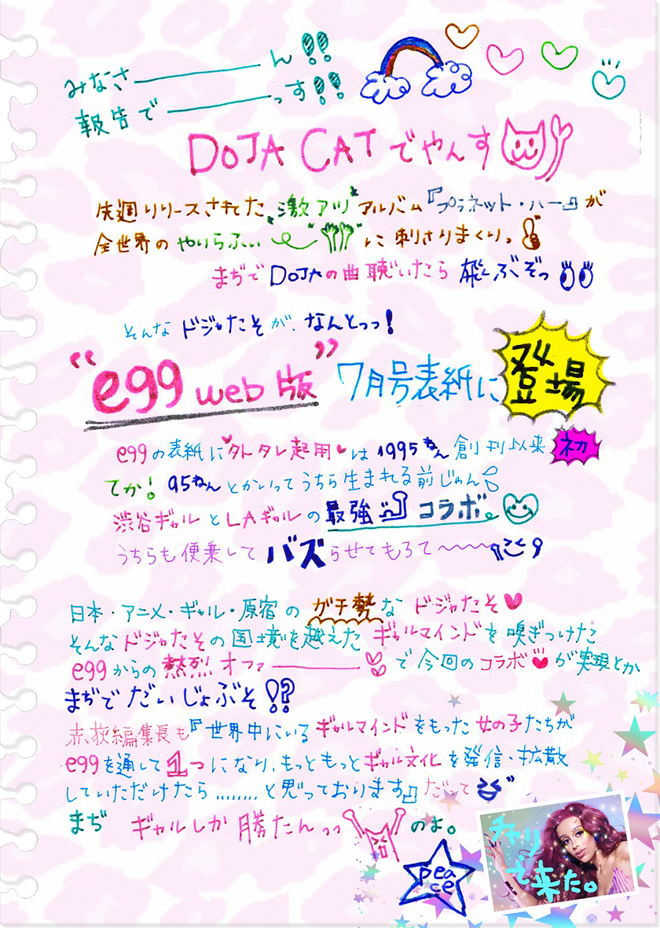 みなさ―――――ん!!
報告で―――――っす!!
DOJA CATでやんす
先週リリースされた激アツアルバム『プラネット・ハー』が
全世界のやりらふぃ〜""に刺さりまくりっ。
まぢでDOJAの曲聴いたら飛ぶぞっ
そんなドジャたそが、なんとっっ!
"egg web版" 7月号表紙に登場
eggの表紙に外タレ起用は1995ねん創刊以来初
てか!95ねんとかいってうちら生まれる前じゅん
渋谷ギャルとLAギャルの最強コラボ
うちらも便乗してバズらせてもろて〜〜〜
日本・アニメ・ギャル・原宿のガチ勢なドジャたそ
そんなドジャたその国境を越えたギャルマインドを嗅ぎつけた
eggからの熱烈オファ―――――で今回のコラボが実現とか
まぢでだいじょぶそ!?
赤荻編集長も『世界中にいるギャルマインドをもった女の子たちが
eggを通して1つになり、もっともっとギャル文化を発信・拡散
していただけたら........と思っております』だって
まぢ ギャルしか勝たんっっのよ。
peace
チャリで来た。